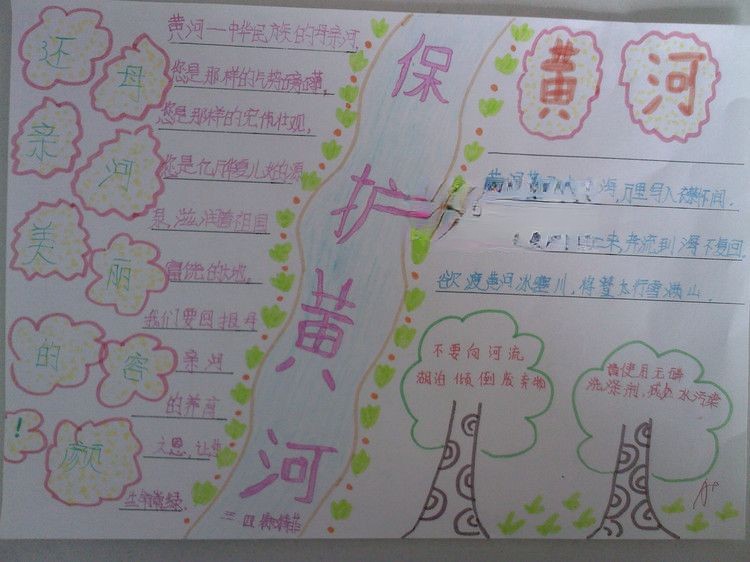 还母亲河美丽的容颜!
黄河——中华民族的母亲河,
您是那样的气势磅礴,
您是那样的宏伟壮观,
您是亿万华夏儿女的源
泉,滋润着祖国
富饶的大地,
我们要回报母
亲河
的养育
之恩,让
保护黄河
三 四
黄河
海,万里写入胸怀间.
来奔流到海不复回.
欲渡黄河冰塞川,将登太行雪满山.
不要向河流
湖泊倾倒废弃物
使用无磷
洗涤剂,减少水污染
A+